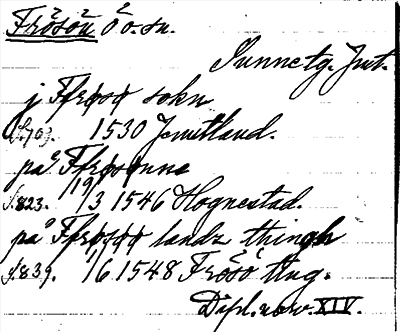 Frösön Ö o. sn.
Sunne tg. Jmt.
j Ffrøsø sokn
S. 763. 1530 Jemtland.
på Ffrøsønne
S. 823. 19/3 1546 Hognestad.
på Ffrøsøø landz thingh
S. 839. 1/6 1548 Frösö ting.
Dipl. norv. XIV.